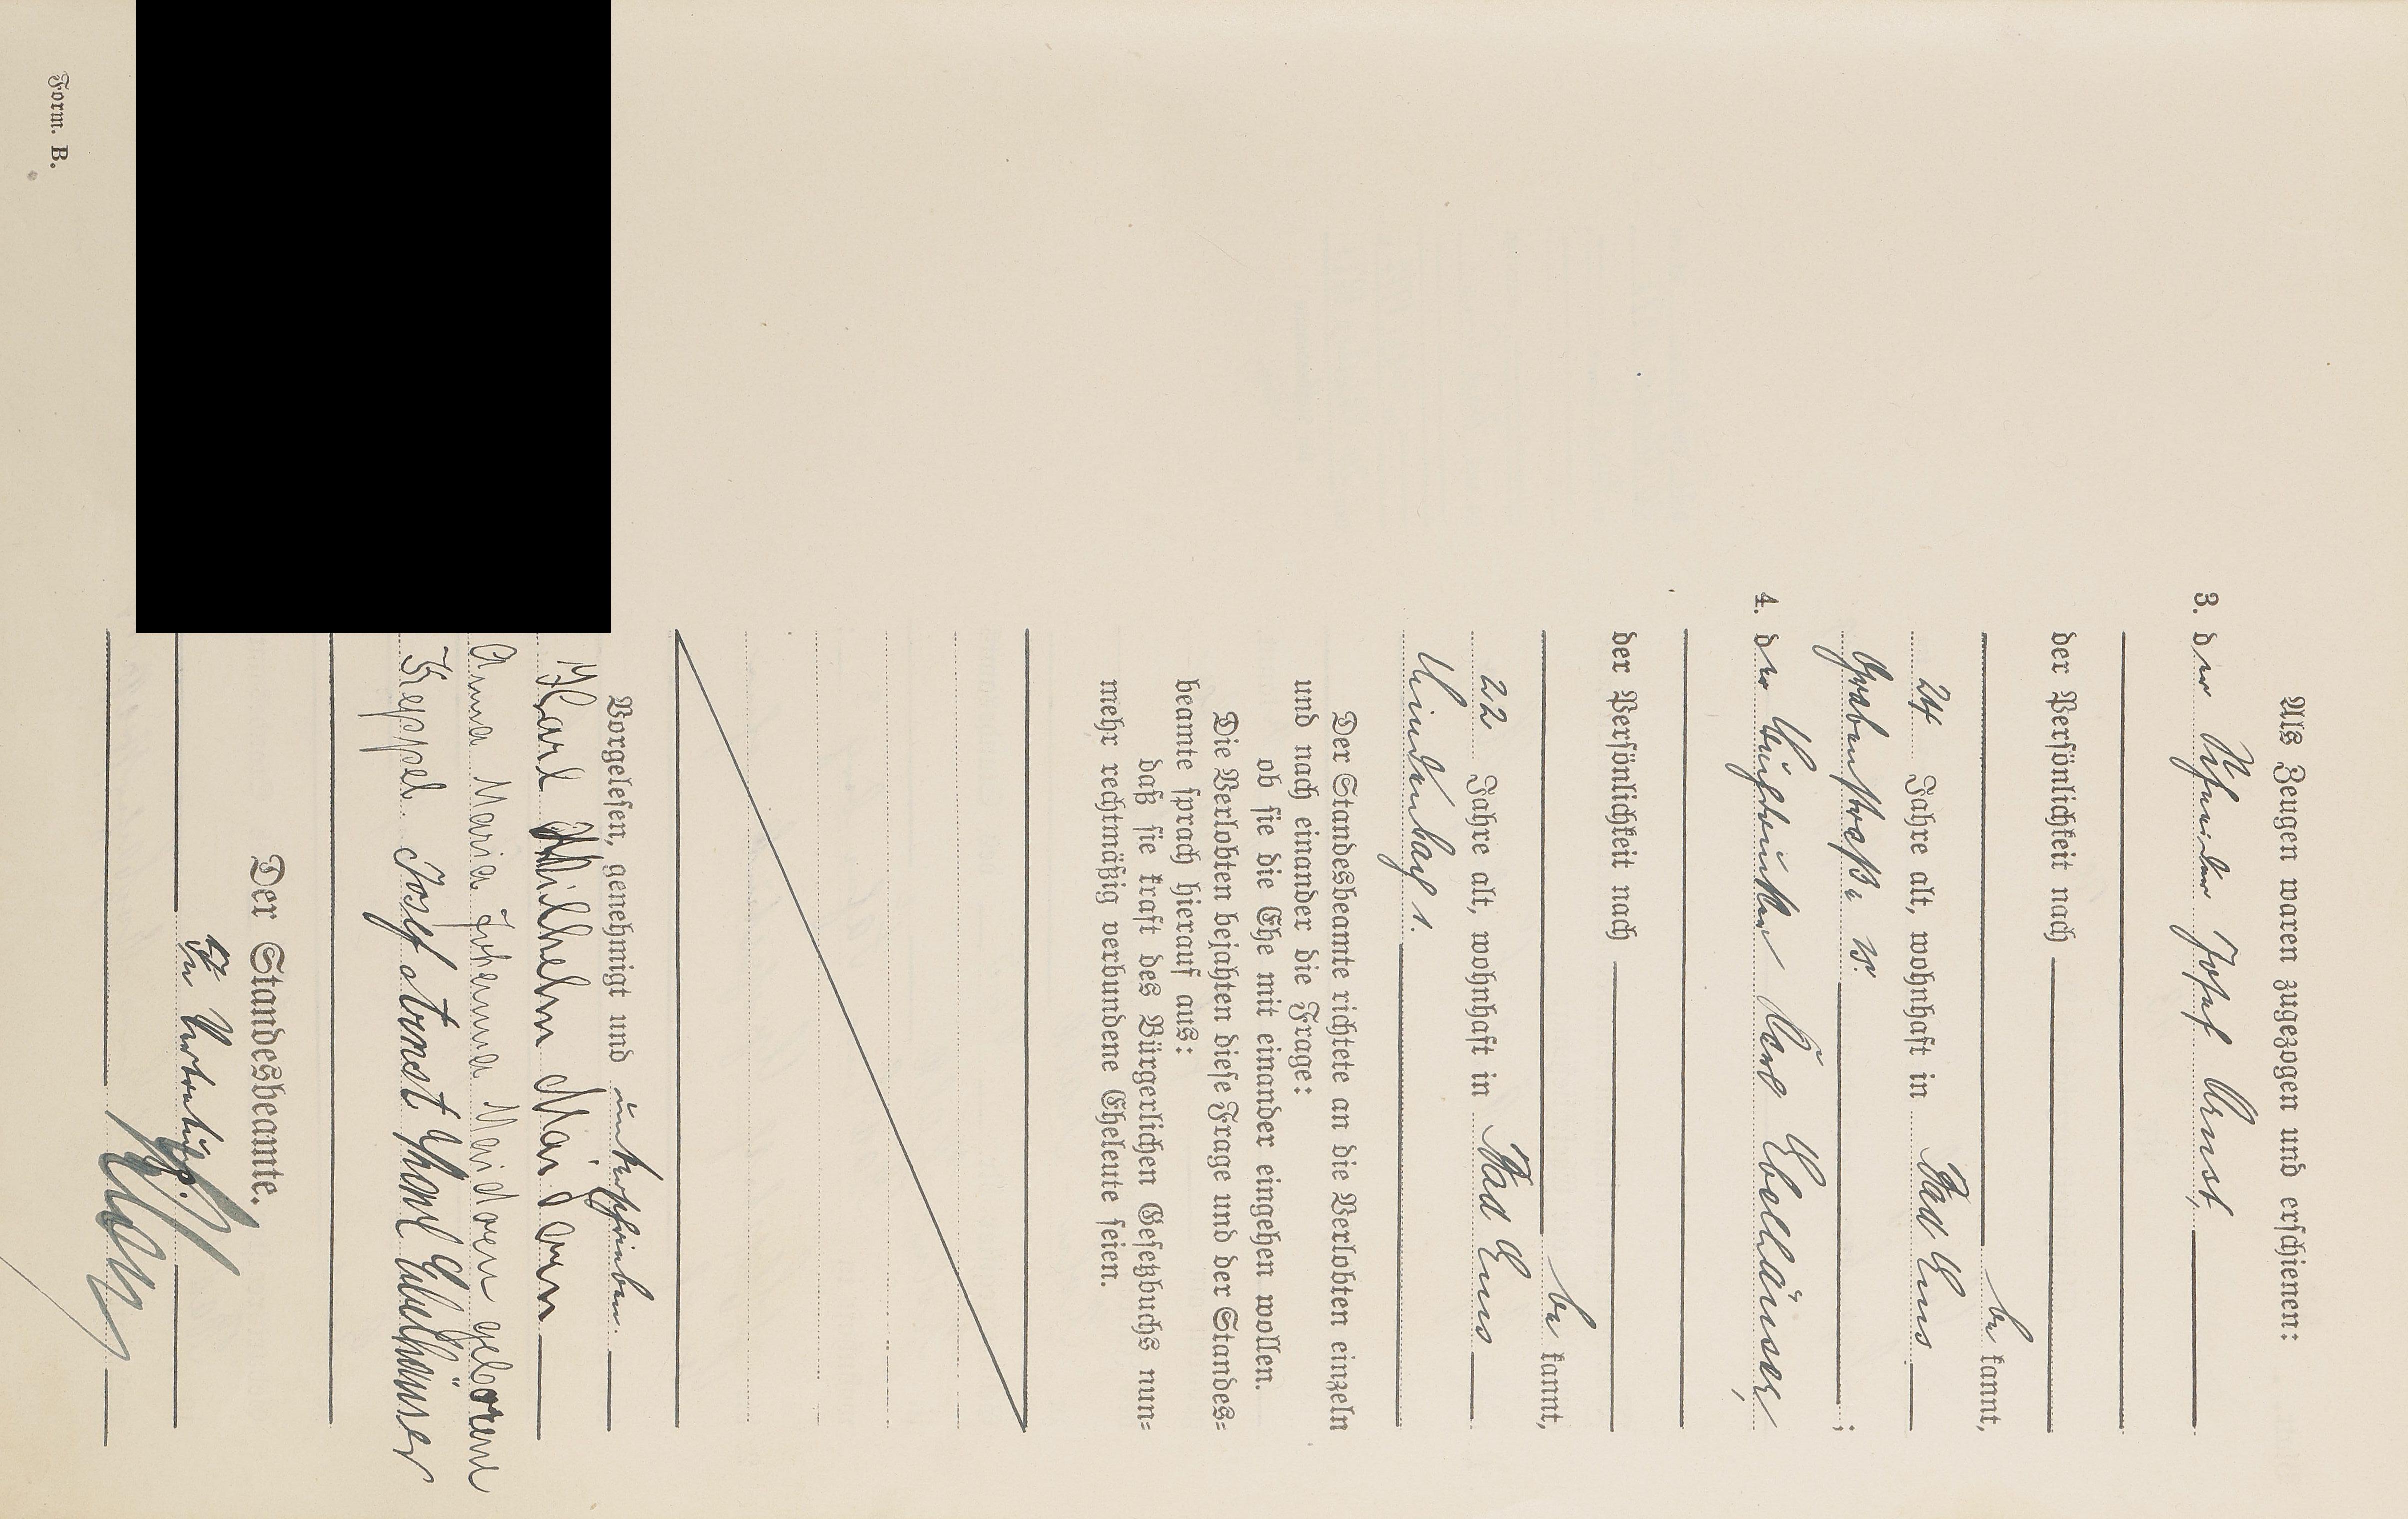 Als Zeugen waren zugezogen und erschienen:
3. der Schneider Josef Ernst,
der Persönlichkeit nach
be kannt,
24 Jahre alt, wohnhaft in Bad Ems
Grabenstraße 28.
;
4. der Karl Ebelhäuser,
der Persönlichkeit nach
be kannt,
22 Jahre alt, wohnhaft in Bad Ems
1.
Der Standesbeamte richtete an die Verlobten einzeln
und nach einander die Frage:
ob sie die Ehe mit einander eingehen wollen.
Die Verlobten bejahten diese Frage und der Standes=
beamte sprach hierauf aus:
daß sie kraft des Bürgerlichen Gesetzbuchs nun=
mehr rechtmäßig verbundene Eheleute seien.
Vorgelesen, genehmigt und unterschrieben.
Karl Wilhelm
Anna Maria Johanna geborene
Keppel. Josef Ernst Karl Ebelhäuser
Der Standesbeamte.
In Vertretung.
Form. B.